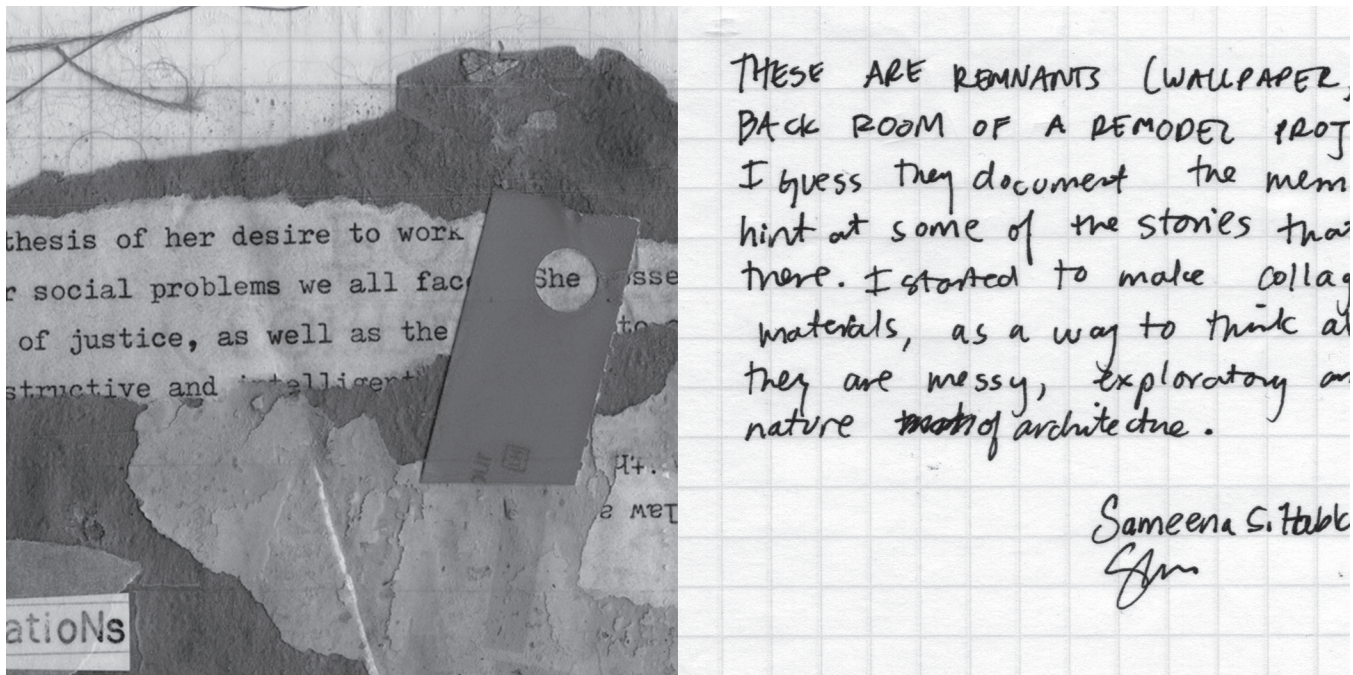 thesis of her desire to work
r social problems we all fac She osse
of justice, as well as the to
structive and intelligent
law a
atioNs
THESE ARE REMNANTS (WALLPAPER,
BACK ROOM OF A REMODEL PROJ
I guess they document the mem
hint at some of the stories that
there. I started to make collag
materials, as a way to think a
they are messy, exploratory an
nature of architectue.
Sameena Sitabk